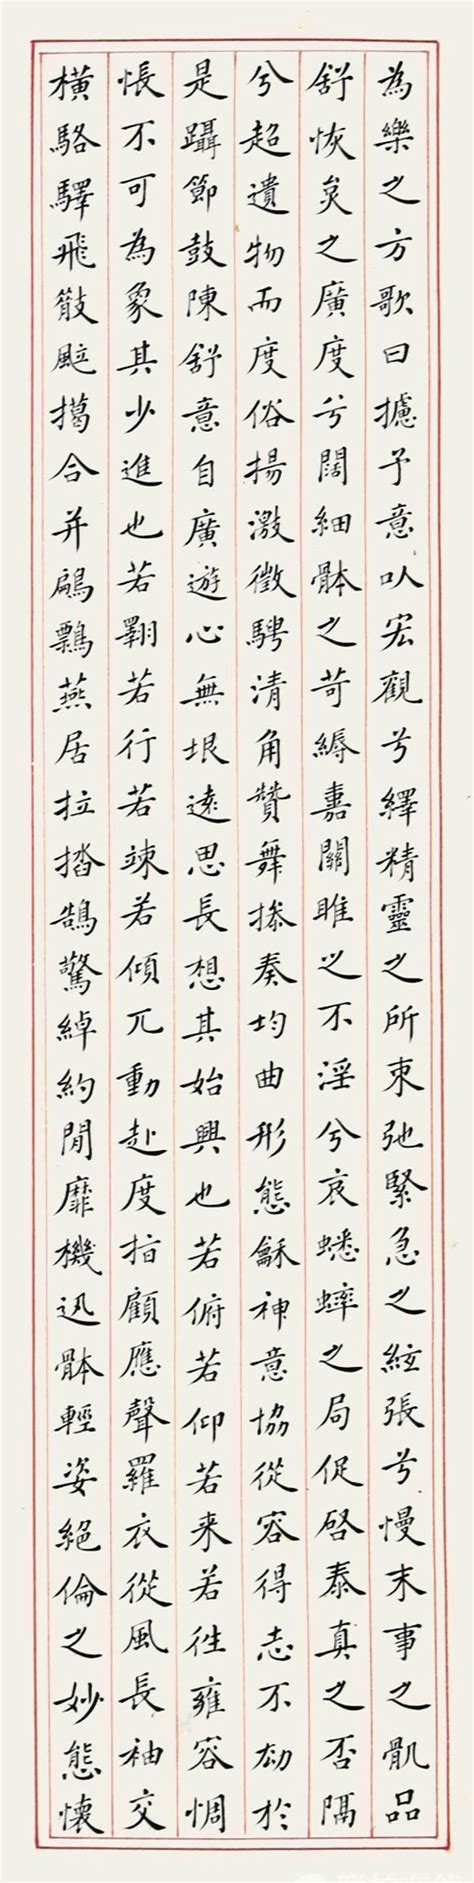 為樂之方歌曰攄予意㕥宏觀兮繹精靈之所束弛緊急之絃張兮慢末事之骩品
舒恢炱之廣度兮闊細骵之苛縟嘉關雎之不淫兮哀蟋蟀之局促啓泰真之否隔
兮超遺物而度俗揚激徵騁清角贊舞摻奏均曲形態龢神意協從容得志不劫於
是躡節鼓陳舒意自廣遊心無垠遠思長想其始興也若俯若仰若来若徃雍容惆
悵不可為象其少進也若翾若行若竦若傾兀動赴度指顧應聲羅衣從風長袖交
橫駱驛飛散颯擖合并鶣鷅燕居拉揩鵠驚綽約閒靡機迅骵輕姿絕倫之妙態懷